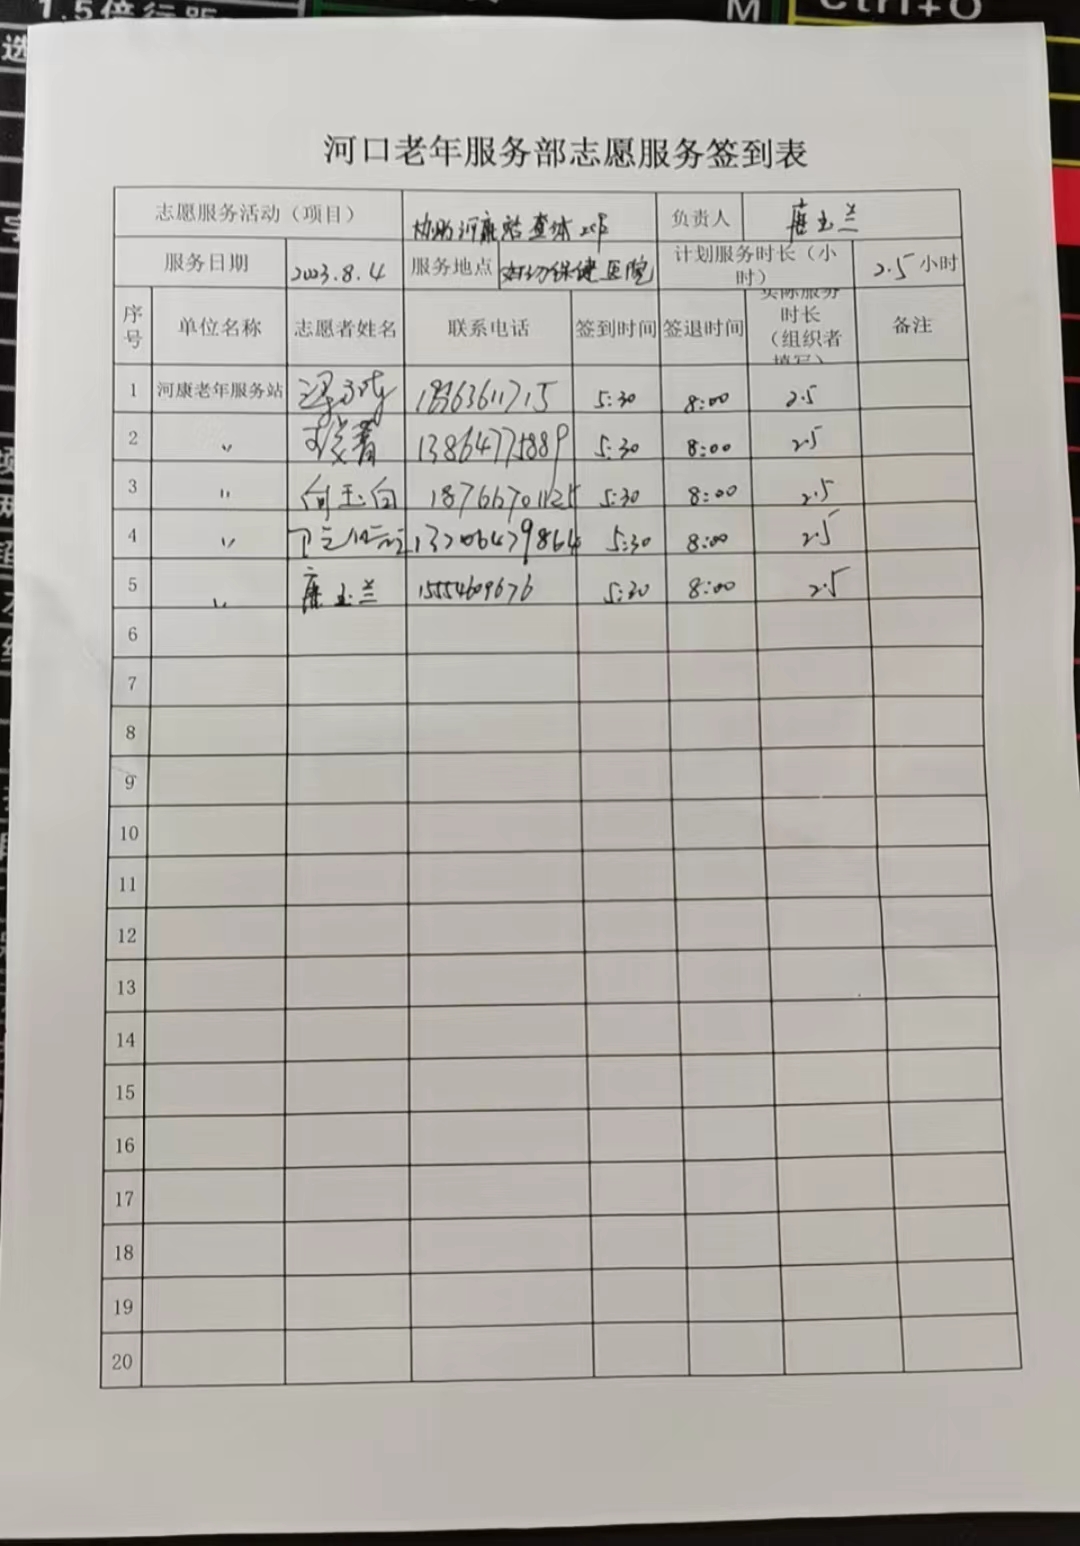 1.5倍行距
M
Ctrl+O
选
河口老年服务部志愿服务签到表
志愿服务活动（项目） 协助河康站查体工作 负责人 唐玉兰
服务日期 2023.8.4 服务地点 妇幼保健医院 计划服务时长（小时） 2.5小时
序号 单位名称 志愿者姓名 联系电话 签到时间 签退时间 实际服务时长（组织者填写） 备注
1 河康老年服务站 5:30 8:00 2.5
2 〃 13864775889 5:30 8:00 2.5
3 〃 向玉向 5:30 8:00 2.5
4 〃 13206479864 5:30 8:00 2.5
5 〃 唐玉兰 15554609676 5:30 8:00 2.5
6
7
8
9
10
11
12
13
14
15
16
17
18
19
20